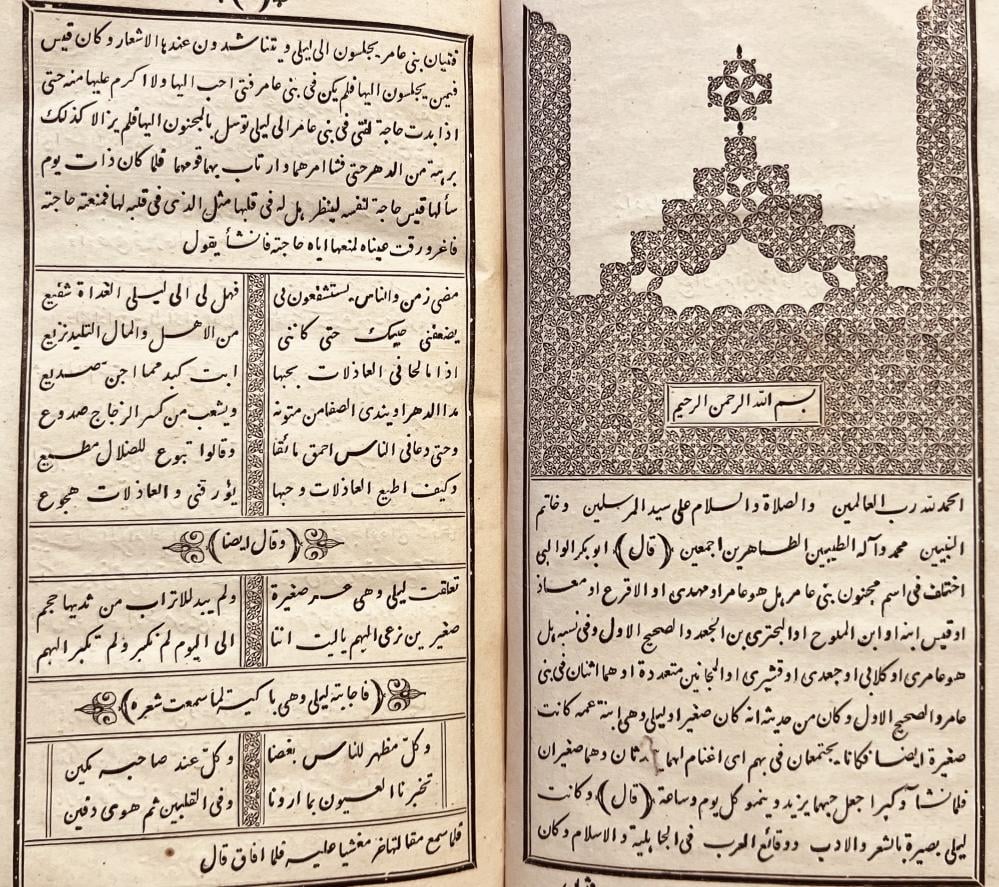 بسم الله الرحمن الرحيم
الحمد لله رب العالمين والصلاة والسلام على سيد المرسلين وخاتم
النبيين محمد وآله الطيبين الطاهرين اجمعين (قال) ابو بكر الوالبي
اختلف في اسم مجنون بني عامر هل هو عامر او مهدي او الاقرع او معاذ
او قيس ابنه او ابن الملوح او البحتري بن الجعد والصحيح الاول وفي نسبه هل
هو عامري او كلابي او جعدي او قشيري او المجانين متعددة او هما اثنان في بني
عامر والصحيح الاول وكان من حديثه انه كان صغيرا وليلى وهي ابنة عمه كانت
صغيرة ايضا فكانا يجتمعان في بهم اي اغنام لهما وهما صغيران
فلما نشآ وكبرا جعل حبهما يزيد وينمو كل يوم وساعة (قال) وكانت
ليلى بصيرة بالشعر والادب ووقائع العرب في الجاهلية والاسلام وكان
فتيان
فتيان بني عامر يجلسون الى ليلى ويتناشدون عندها الاشعار وكان قيس
فيمن يجلسون اليها فلم يكن في بني عامر فتى احب اليها ولا اكرم عليها منه حتى
اذا بدت حاجة لفتى في بني عامر الى ليلى توسل بالمجنون اليها فلم يزالا كذلك
برهة من الدهر حتى فشا امرهما وارتاب بهما قومهما فلما كان ذات يوم
سألها قيس حاجة لنفسه لينظر هل له في قلبها مثل الذي في قلبه لها فمنعته حاجته
فاغرورقت عيناه لمنعها اياه حاجته فانشأ يقول
مضى زمن والناس يستشفعون بي فهل لي الى ليلى الغداة شفيع
يضعفني حبيك حتى كانني من الاهل والمال التليد نزيع
اذا ما لحاني العاذلات بحبها ابت كبد مما اجن صديع
مدا الدهر او يندى الصفا من متونه ويشعب من كسر الزجاج صدوع
وحتى دعاني الناس احمق مائقا وقالوا تبوع للضلال مطيع
وكيف اطيع العاذلات وحبها يؤرقني والعاذلات هجوع
(وقال ايضا)
تعلقت ليلى وهي غر صغيرة ولم يبد للاتراب من ثديها حجم
صغيرين نرعى البهم يا ليت اننا الى اليوم لم نكبر ولم تكبر البهم
(فاجابته ليلى وهي باكية لما سمعت شعره)
وكل مظهر للناس بغضا وكل عند صاحبه مكين
تخبرنا العيون بما اردنا وفي القلبين ثم هوى دفين
فلما سمع مقالتها خر مغشيا عليه فلما افاق قال